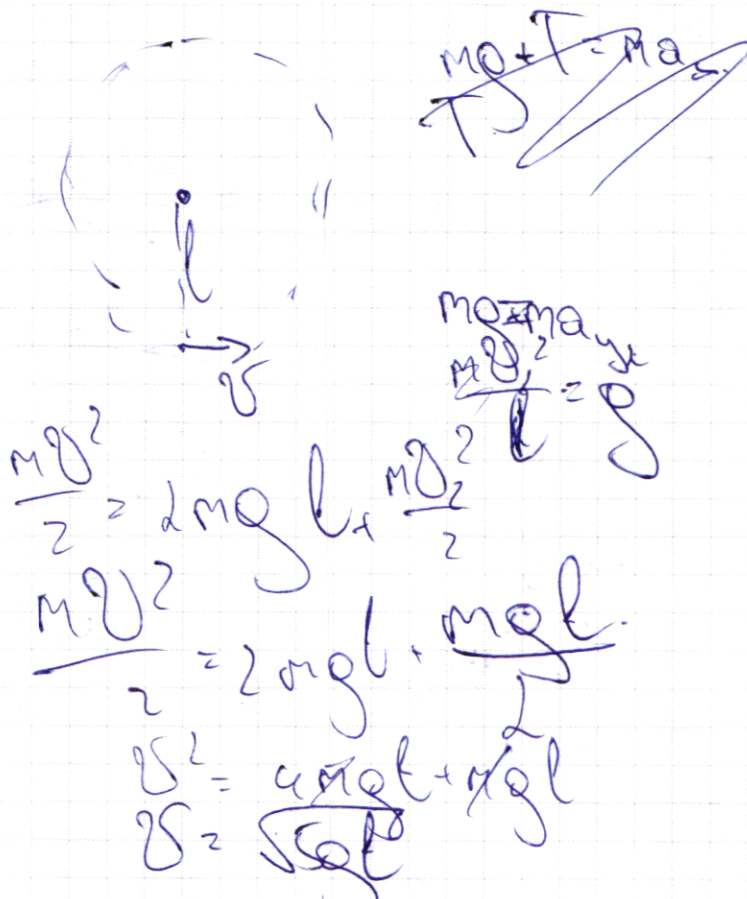 mg + T = ma
T
l
v
mg = ma_yc
mv₂²/l = g
mv²/2 = 2mgl + mv₂²/2
mv²/2 = 2mgl + mgl/2
v² = 4mgl + mgl
v = √5gl